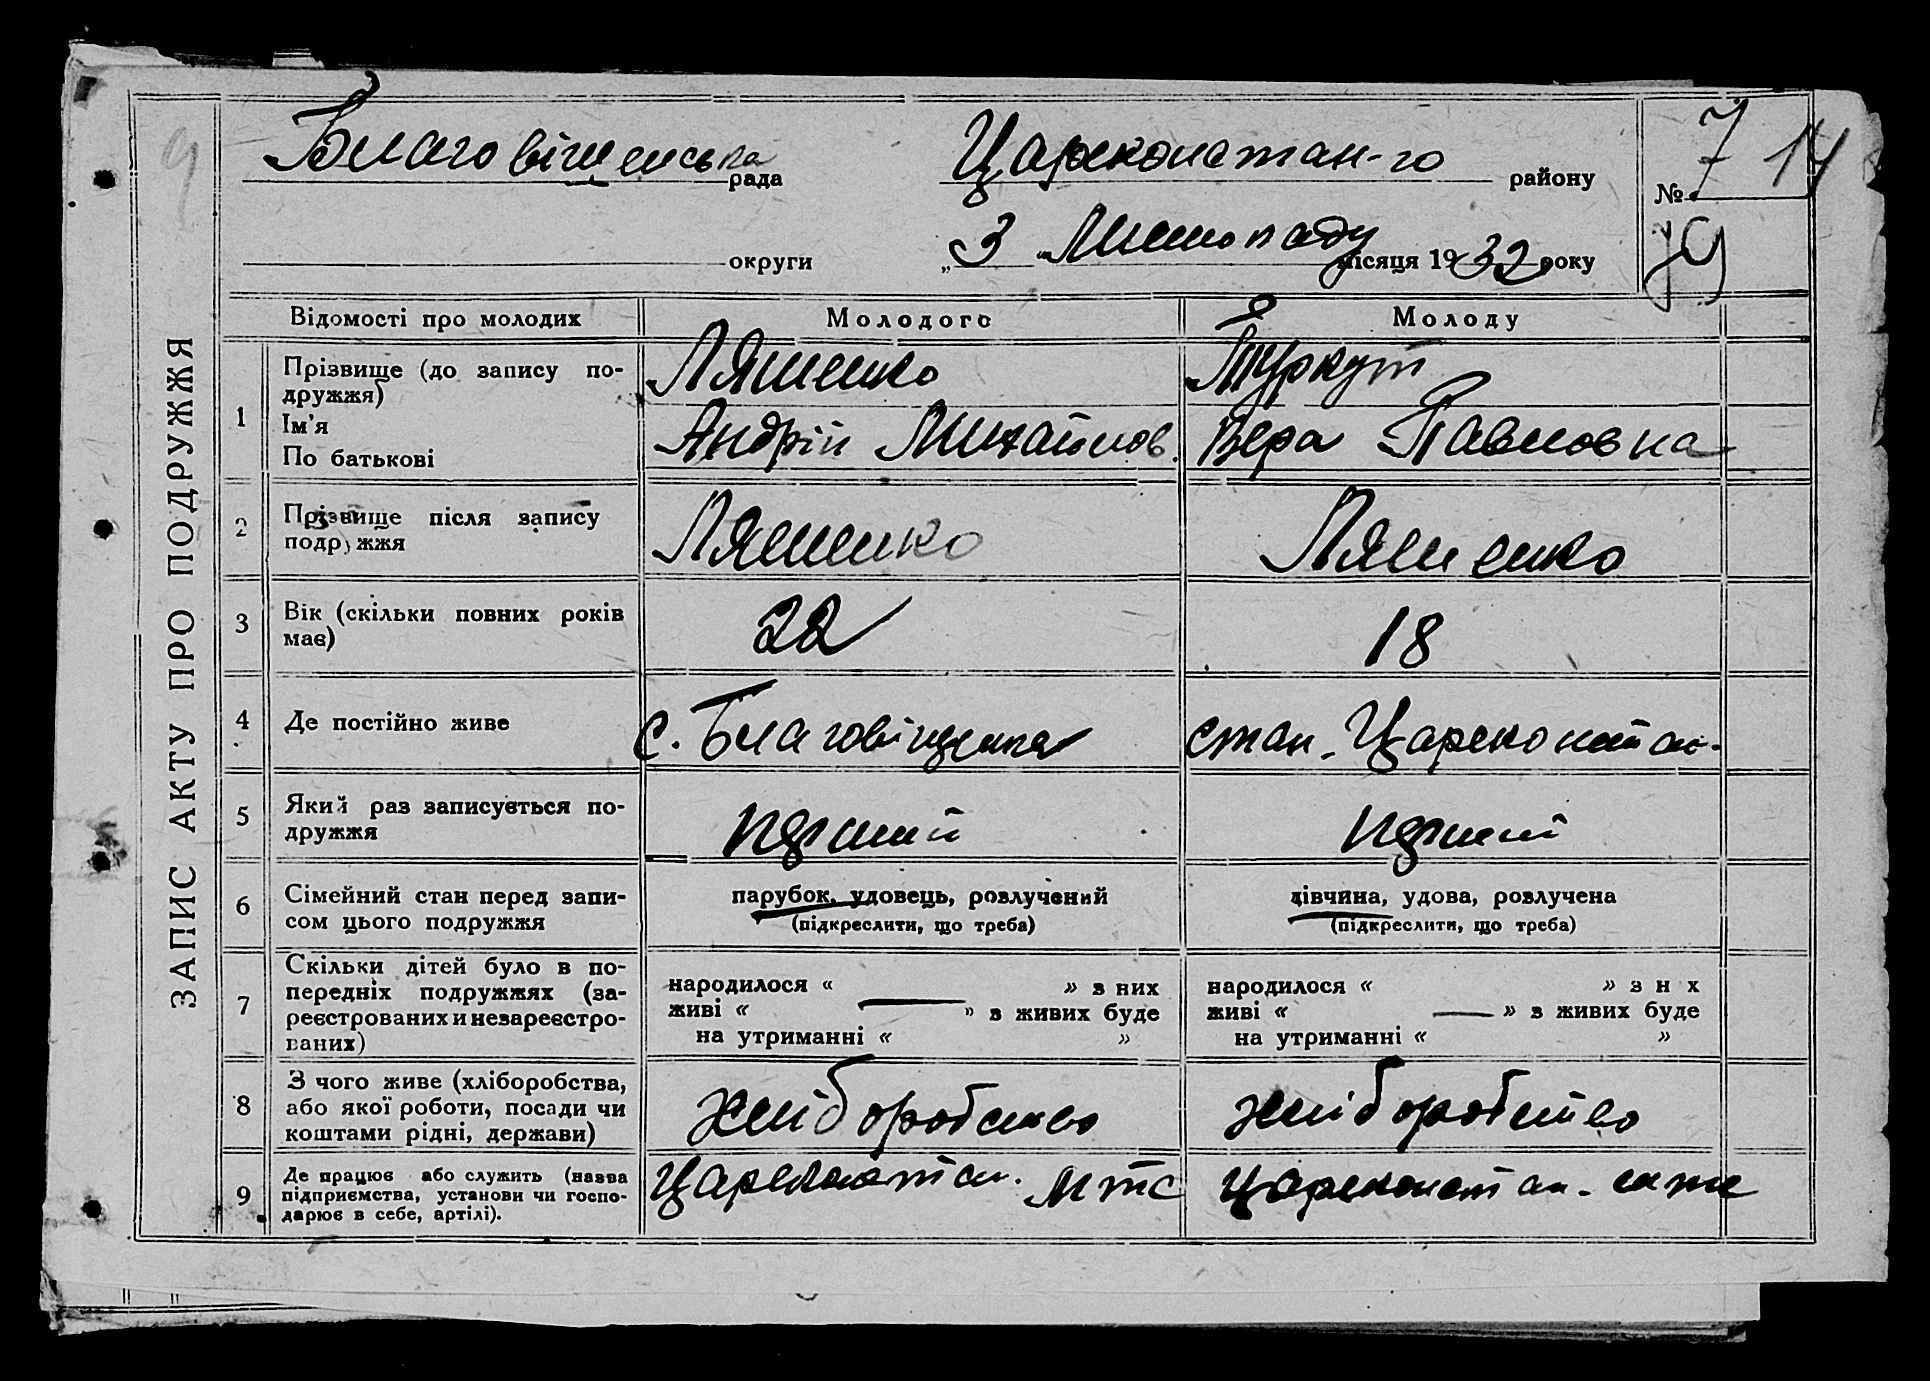 ЗАПИС АКТУ ПРО ПОДРУЖЖЯ
Благовіщенська рада
Цареконстан-го району
№ 7 14
округи
„3“ Листопаду місяця 1932 року
Відомості про молодих Молодого Молоду
1 Прізвище (до запису по-
дружжя)
Ім'я
По батькові
Ляшенко
Андрій Михайлов.
Туркут
Вера Павловна
2 Прізвище після запису
подружжя
Ляшенко
Ляшенко
3 Вік (скільки повних років
має)
22
18
4 Де постійно живе
с. Благовіщенка
стан. Цареконстан.
5 Який раз записується по-
дружжя
перший
перший
6 Сімейний стан перед запи-
сом цього подружжя
парубок, удовець, розлучений
(підкреслити, що треба)
дівчина, удова, розлучена
(підкреслити, що треба)
7 Скільки дітей було в по-
передніх подружжях (за-
реєстрованих и незареєстро-
ваних)
народилося « » з них
живі « — » з живих буде
на утриманні « »
народилося « » з н х
живі « — » з живих буде
на утриманні « »
8 З чого живе (хліборобства,
або якої роботи, посади чи
коштами рідні, держави)
хліборобство
хліборобство
9 Де працює або служить (назва
підприємства, установи чи госпо-
дарює в себе, артілі).
Цареконстан. МТС
Цареконстан.